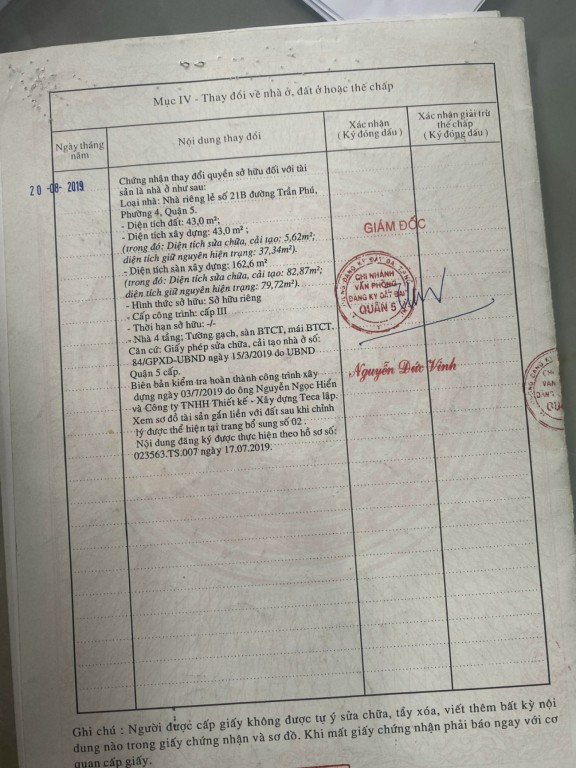 Mục IV - Thay đổi về nhà ở, đất ở hoặc thế chấp
Ngày tháng năm
Nội dung thay đổi
Xác nhận
( Ký đóng dấu )
Xác nhận giải trừ
thế chấp
( Ký đóng dấu )
20 -08- 2019
Chứng nhận thay đổi quyền sở hữu đối với tài
sản là nhà ở như sau:
Loại nhà: Nhà riêng lẻ số 21B đường Trần Phú,
Phường 4, Quận 5.
- Diện tích đất: 43,0 m²;
- Diện tích xây dựng: 43,0 m² ;
(trong đó: Diện tích sửa chữa, cải tạo: 5,62m²;
diện tích giữ nguyên hiện trạng: 37,34m²).
- Diện tích sàn xây dựng: 162,6 m²
(trong đó: Diện tích sửa chữa, cải tạo: 82,87m²;
diện tích giữ nguyên hiện trạng: 79,72m²).
- Hình thức sở hữu: Sở hữu riêng
- Cấp công trình: cấp III
- Thời hạn sở hữu: -/-
- Nhà 4 tầng; Tường gạch, sàn BTCT, mái BTCT.
Căn cứ: Giấy phép sửa chữa, cải tạo nhà ở số:
84/GPXD-UBND ngày 15/3/2019 do UBND
Quận 5 cấp.
Biên bản kiểm tra hoàn thành công trình xây
dựng ngày 03/7/2019 do ông Nguyễn Ngọc Hiển
và Công ty TNHH Thiết kế - Xây dựng Teca lập.
Xem sơ đồ tài sản gắn liền với đất sau khi chỉnh
lý được thể hiện tại trang bổ sung số 02 .
Nội dung đăng ký được thực hiện theo hồ sơ số:
023563.TS.007 ngày 17.07.2019.
GIÁM ĐỐC
CHI NHÁNH
VĂN PHÒNG
ĐĂNG KÝ ĐẤT ĐAI
QUẬN 5
Nguyễn Đức Vinh
CHI
VĂN
ĐĂNG
Ghi chú : Người được cấp giấy không được tự ý sửa chữa, tẩy xóa, viết thêm bất kỳ nội
dung nào trong giấy chứng nhận và sơ đồ. Khi mất giấy chứng nhận phải báo ngay với cơ
quan cấp giấy.